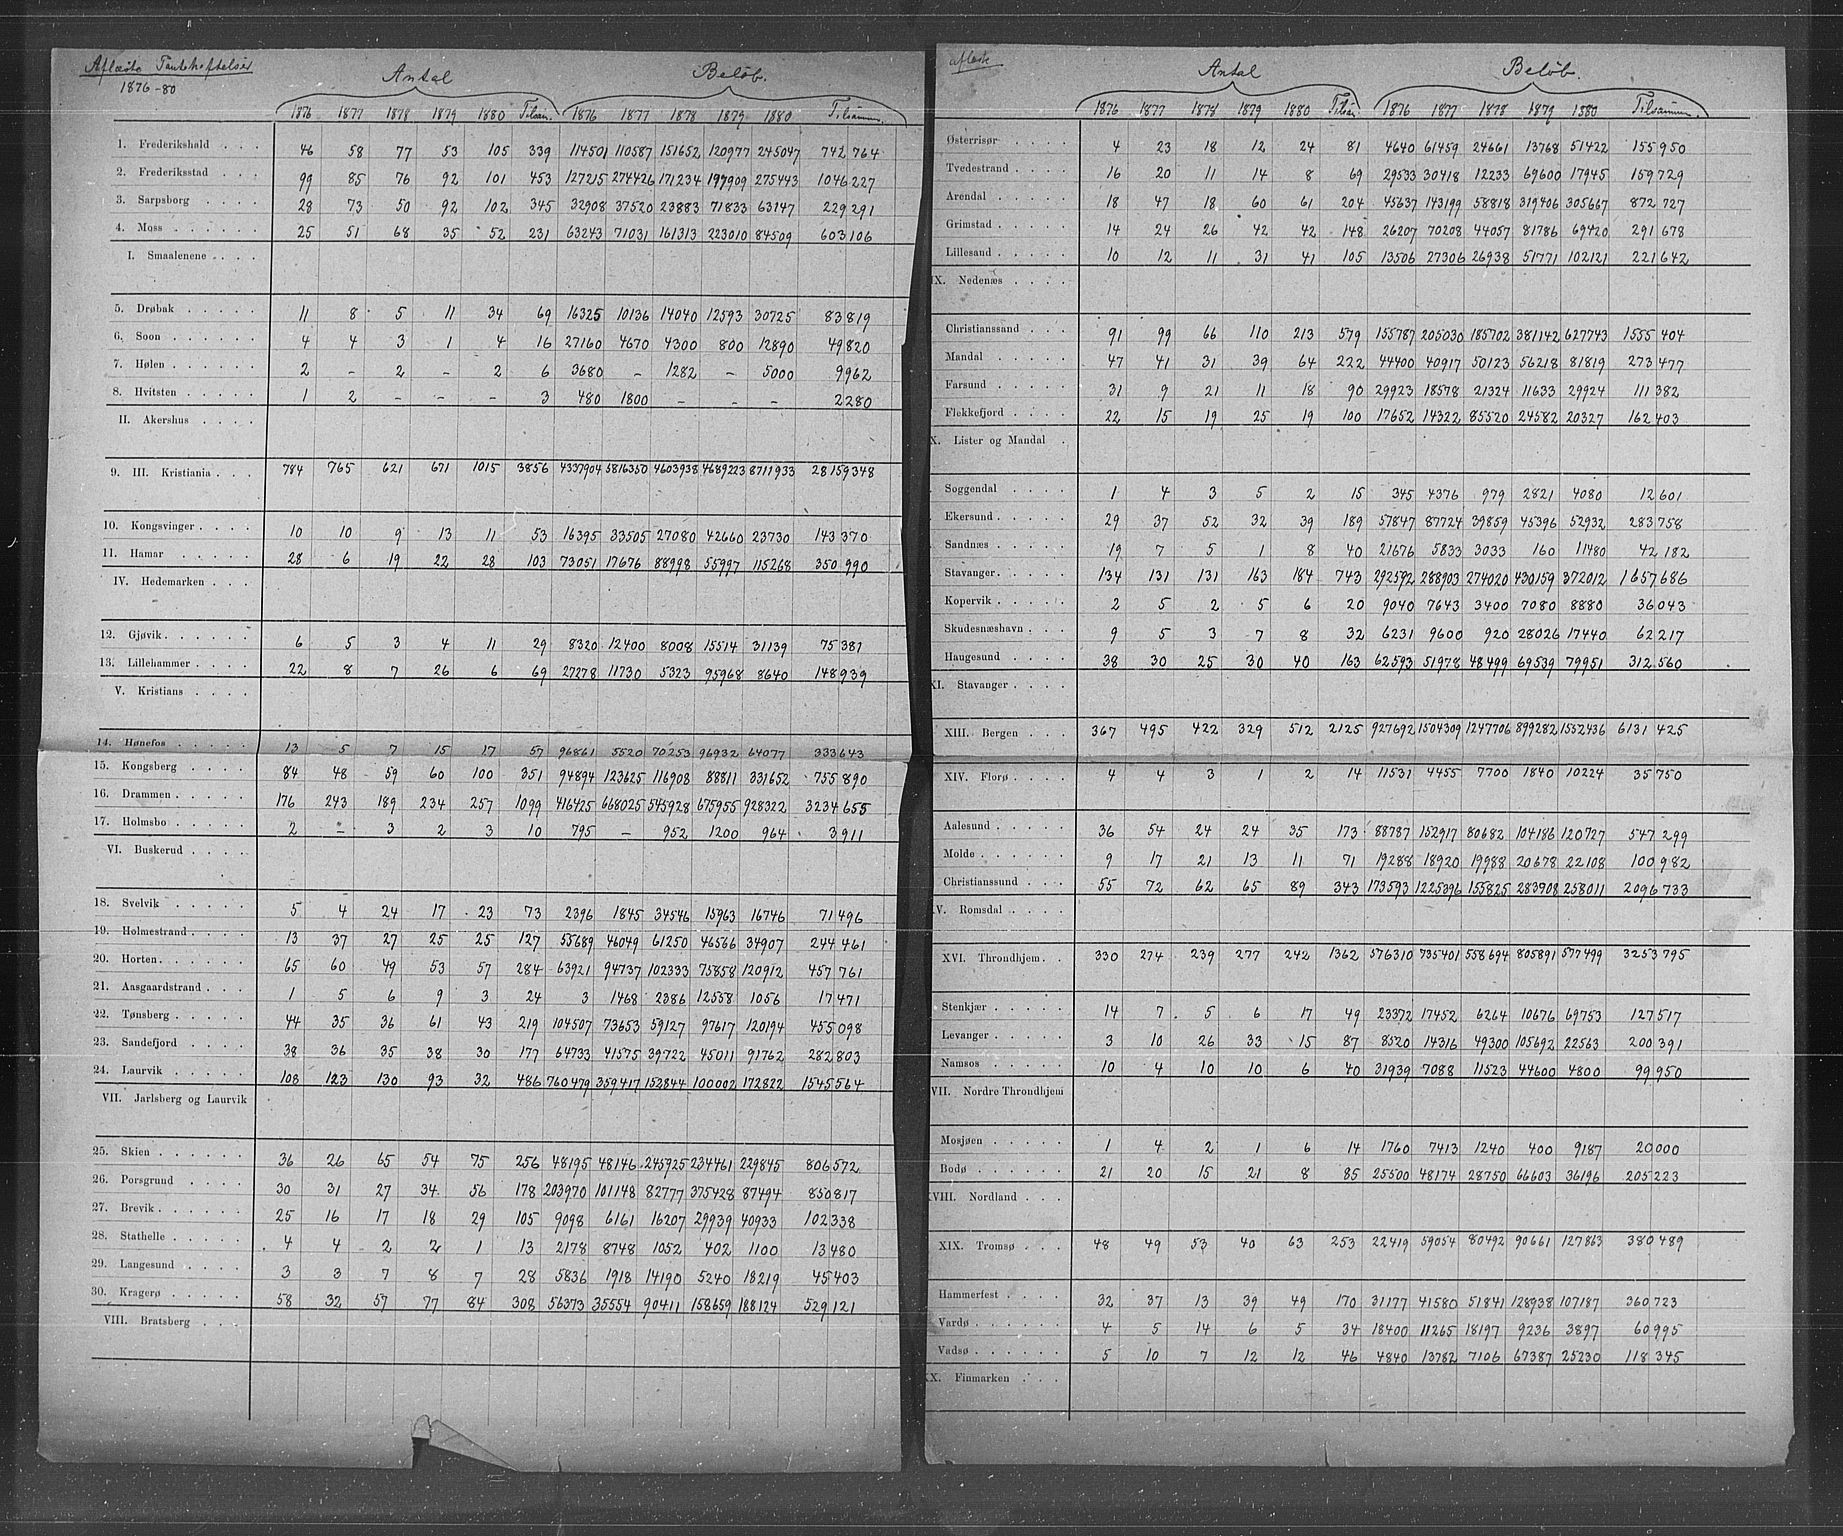 Aflæste Pantehæftelser
1876-80
Antal Beløb.
1876 1877 1878 1879 1880 Tilsam. 1876 1877 1878 1879 1880 Tilsammen.
1. Frederikshald . . . 46 58 77 53 105 339 114501 110587 151652 120977 245047 742764
2. Frederiksstad . . . 99 85 76 92 101 453 127215 274426 171234 197909 275443 1046227
3. Sarpsborg . . . . 28 73 50 92 102 345 32908 37520 23883 71833 63147 229291
4. Moss . . . . . . 25 51 68 35 52 231 63243 71031 161313 223010 84509 603106
I. Smaalenene . . . .
5. Drøbak . . . . . 11 8 5 11 34 69 16325 10136 14040 12593 30725 83819
6. Soon . . . . . . 4 4 3 1 4 16 27160 4670 4300 800 12890 49820
7. Hølen . . . . . 2 – 2 – 2 6 3680 – 1282 – 5000 9962
8. Hvitsten . . . . . 1 2 – – – 3 480 1800 – – – 2280
II. Akershus . . . .
9. III. Kristiania . . . 784 765 621 671 1015 3856 4337904 5816350 4603938 4689223 8711933 28159348
10. Kongsvinger . . . . 10 10 9 13 11 53 16395 33505 27080 42660 23730 143370
11. Hamar . . . . . 28 6 19 22 28 103 73051 17676 88998 55997 115268 350990
IV. Hedemarken . . . .
12. Gjøvik . . . . . . 6 5 3 4 11 29 8320 12400 8008 15514 31139 75381
13. Lillehammer . . . . 22 8 7 26 6 69 27278 11730 5323 95968 8640 148939
V. Kristians . . . .
14. Hønefos . . . . . 13 5 7 15 17 57 96861 5520 70253 96932 64077 333643
15. Kongsberg . . . . 84 48 59 60 100 351 94894 123625 116908 88811 331652 755890
16. Drammen . . . . . 176 243 189 234 257 1099 416425 668025 545928 675955 928322 3234655
17. Holmsbo . . . . . 2 – 3 2 3 10 795 – 952 1200 964 3911
VI. Buskerud . . . .
18. Svelvik . . . . . 5 4 24 17 23 73 2396 1845 34546 15963 16746 71496
19. Holmestrand . . . . 13 37 27 25 25 127 55689 46049 61250 46566 34907 244461
20. Horten . . . . . . 65 60 49 53 57 284 63921 94737 102333 75858 120912 457761
21. Aasgaardstrand . . . 1 5 6 9 3 24 3 1468 2386 12558 1056 17471
22. Tønsberg . . . . . 44 35 36 61 43 219 104507 73653 59127 97617 120194 455098
23. Sandefjord . . . . 38 36 35 38 30 177 64733 41575 39722 45011 91762 282803
24. Laurvik . . . . . 108 123 130 93 32 486 760479 359417 152844 100002 172822 1545564
VII. Jarlsberg og Laurvik
25. Skien . . . . . . 36 26 65 54 75 256 48195 48146 245925 234461 229845 806572
26. Porsgrund . . . . 30 31 27 34 56 178 203970 101148 82777 375428 87494 850817
27. Brevik . . . . . . 25 16 17 18 29 105 9098 6161 16207 29939 40933 102338
28. Stathelle . . . . . 4 4 2 2 1 13 2178 8748 1052 402 1100 13480
29. Langesund . . . . 3 3 7 8 7 28 5836 1918 14190 5240 18219 45403
30. Kragerø . . . . . 58 32 57 77 84 308 56373 35554 90411 158659 188124 529121
VIII. Bratsberg . . .
aflæste
Antal Beløb.
1876 1877 1878 1879 1880 Tilsam. 1876 1877 1878 1879 1880 Tilsammen.
Østerrisør . . . . 4 23 18 12 24 81 4640 61459 24661 13768 51422 155950
Tvedestrand . . . . 16 20 11 14 8 69 29533 30418 12233 69600 17945 159729
Arendal . . . . . 18 47 18 60 61 204 45637 143199 58818 319406 305667 872727
Grimstad . . . . . 14 24 26 42 42 148 26207 70208 44057 81786 69420 291678
Lillesand . . . . . 10 12 11 31 41 105 13506 27306 26938 51771 102121 221642
IX. Nedenæs . . . .
Christianssand . . . 91 99 66 110 213 579 155787 205030 185702 381142 627743 1555404
Mandal . . . . . 47 41 31 39 64 222 44400 40917 50123 56218 81819 273477
Farsund . . . . . 31 9 21 11 18 90 29923 18578 21324 11633 29924 111382
Flekkefjord . . . . 22 15 19 25 19 100 17652 14322 85520 24582 20327 162403
X. Lister og Mandal .
Soggendal . . . . 1 4 3 5 2 15 345 4376 979 2821 4080 12601
Ekersund . . . . . 29 37 52 32 39 189 57847 87724 39859 45396 52932 283758
Sandnæs . . . . . 19 7 5 1 8 40 21676 5833 3033 160 11480 42182
Stavanger . . . . . 134 131 131 163 184 743 292592 288903 274020 430159 372012 1657686
Kopervik . . . . . 2 5 2 5 6 20 9040 7643 3400 7080 8880 36043
Skudesnæshavn . . . 9 5 3 7 8 32 6231 9600 920 28026 17440 62217
Haugesund . . . . 38 30 25 30 40 163 62593 51978 48499 69539 79951 312560
XI. Stavanger . . . .
XIII. Bergen . . . . 367 495 422 329 512 2125 927692 1504309 1247706 899282 1552436 6131425
XIV. Florø . . . . 4 4 3 1 2 14 11531 4455 7700 1840 10224 35750
Aalesund . . . . . 36 54 24 24 35 173 88787 152917 80682 104186 120727 547299
Molde . . . . . . 9 17 21 13 11 71 19288 18920 19988 20678 22108 100982
Christianssund . . . 55 72 62 65 89 343 173593 1225396 155825 283908 258011 2096733
XV. Romsdal . . . .
XVI. Throndhjem . . 330 274 239 277 242 1362 576310 735401 558694 805891 577499 3253795
Stenkjær . . . . . 14 7 5 6 17 49 23372 17452 6264 10676 69753 127517
Levanger . . . . . 3 10 26 33 15 87 8520 14316 49300 105692 22563 200391
Namsos . . . . . 10 4 10 10 6 40 31939 7088 11523 44600 4800 99950
VII. Nordre Throndhjem
Mosjøen . . . . . 1 4 2 1 6 14 1760 7413 1240 400 9187 20000
Bodø . . . . . . 21 20 15 21 8 85 25500 48174 28750 66603 36196 205223
XVIII. Nordland . . .
XIX. Tromsø . . . 48 49 53 40 63 253 22419 59054 80492 90661 127863 380489
Hammerfest . . . . 32 37 13 39 49 170 31177 41580 51841 128938 107187 360723
Vardø . . . . . . 4 5 14 6 5 34 18400 11265 18197 9236 3897 60995
Vadsø . . . . . . 5 10 7 12 12 46 4840 13782 7106 67387 25230 118345
XX. Finmarken . . .